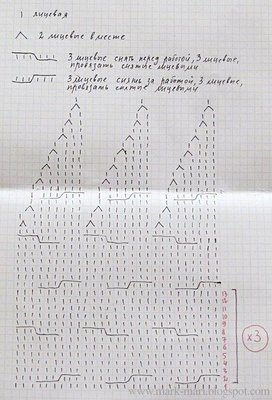 лицевая
2 лицевые вместе
3 лицевые снять перед работой, 3 лицевые,
провязать снятые лицевыми
3 лицевые снять за работой, 3 лицевые,
провязать снятые лицевыми
12
11
10
9
8
7
6
5
4
3
2
1
x3
www.mark-mari.blogspot.com